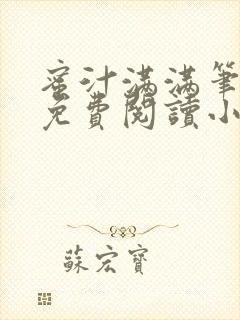 蜜汁滿滿筆
免費閱讀小
蘇宏寶